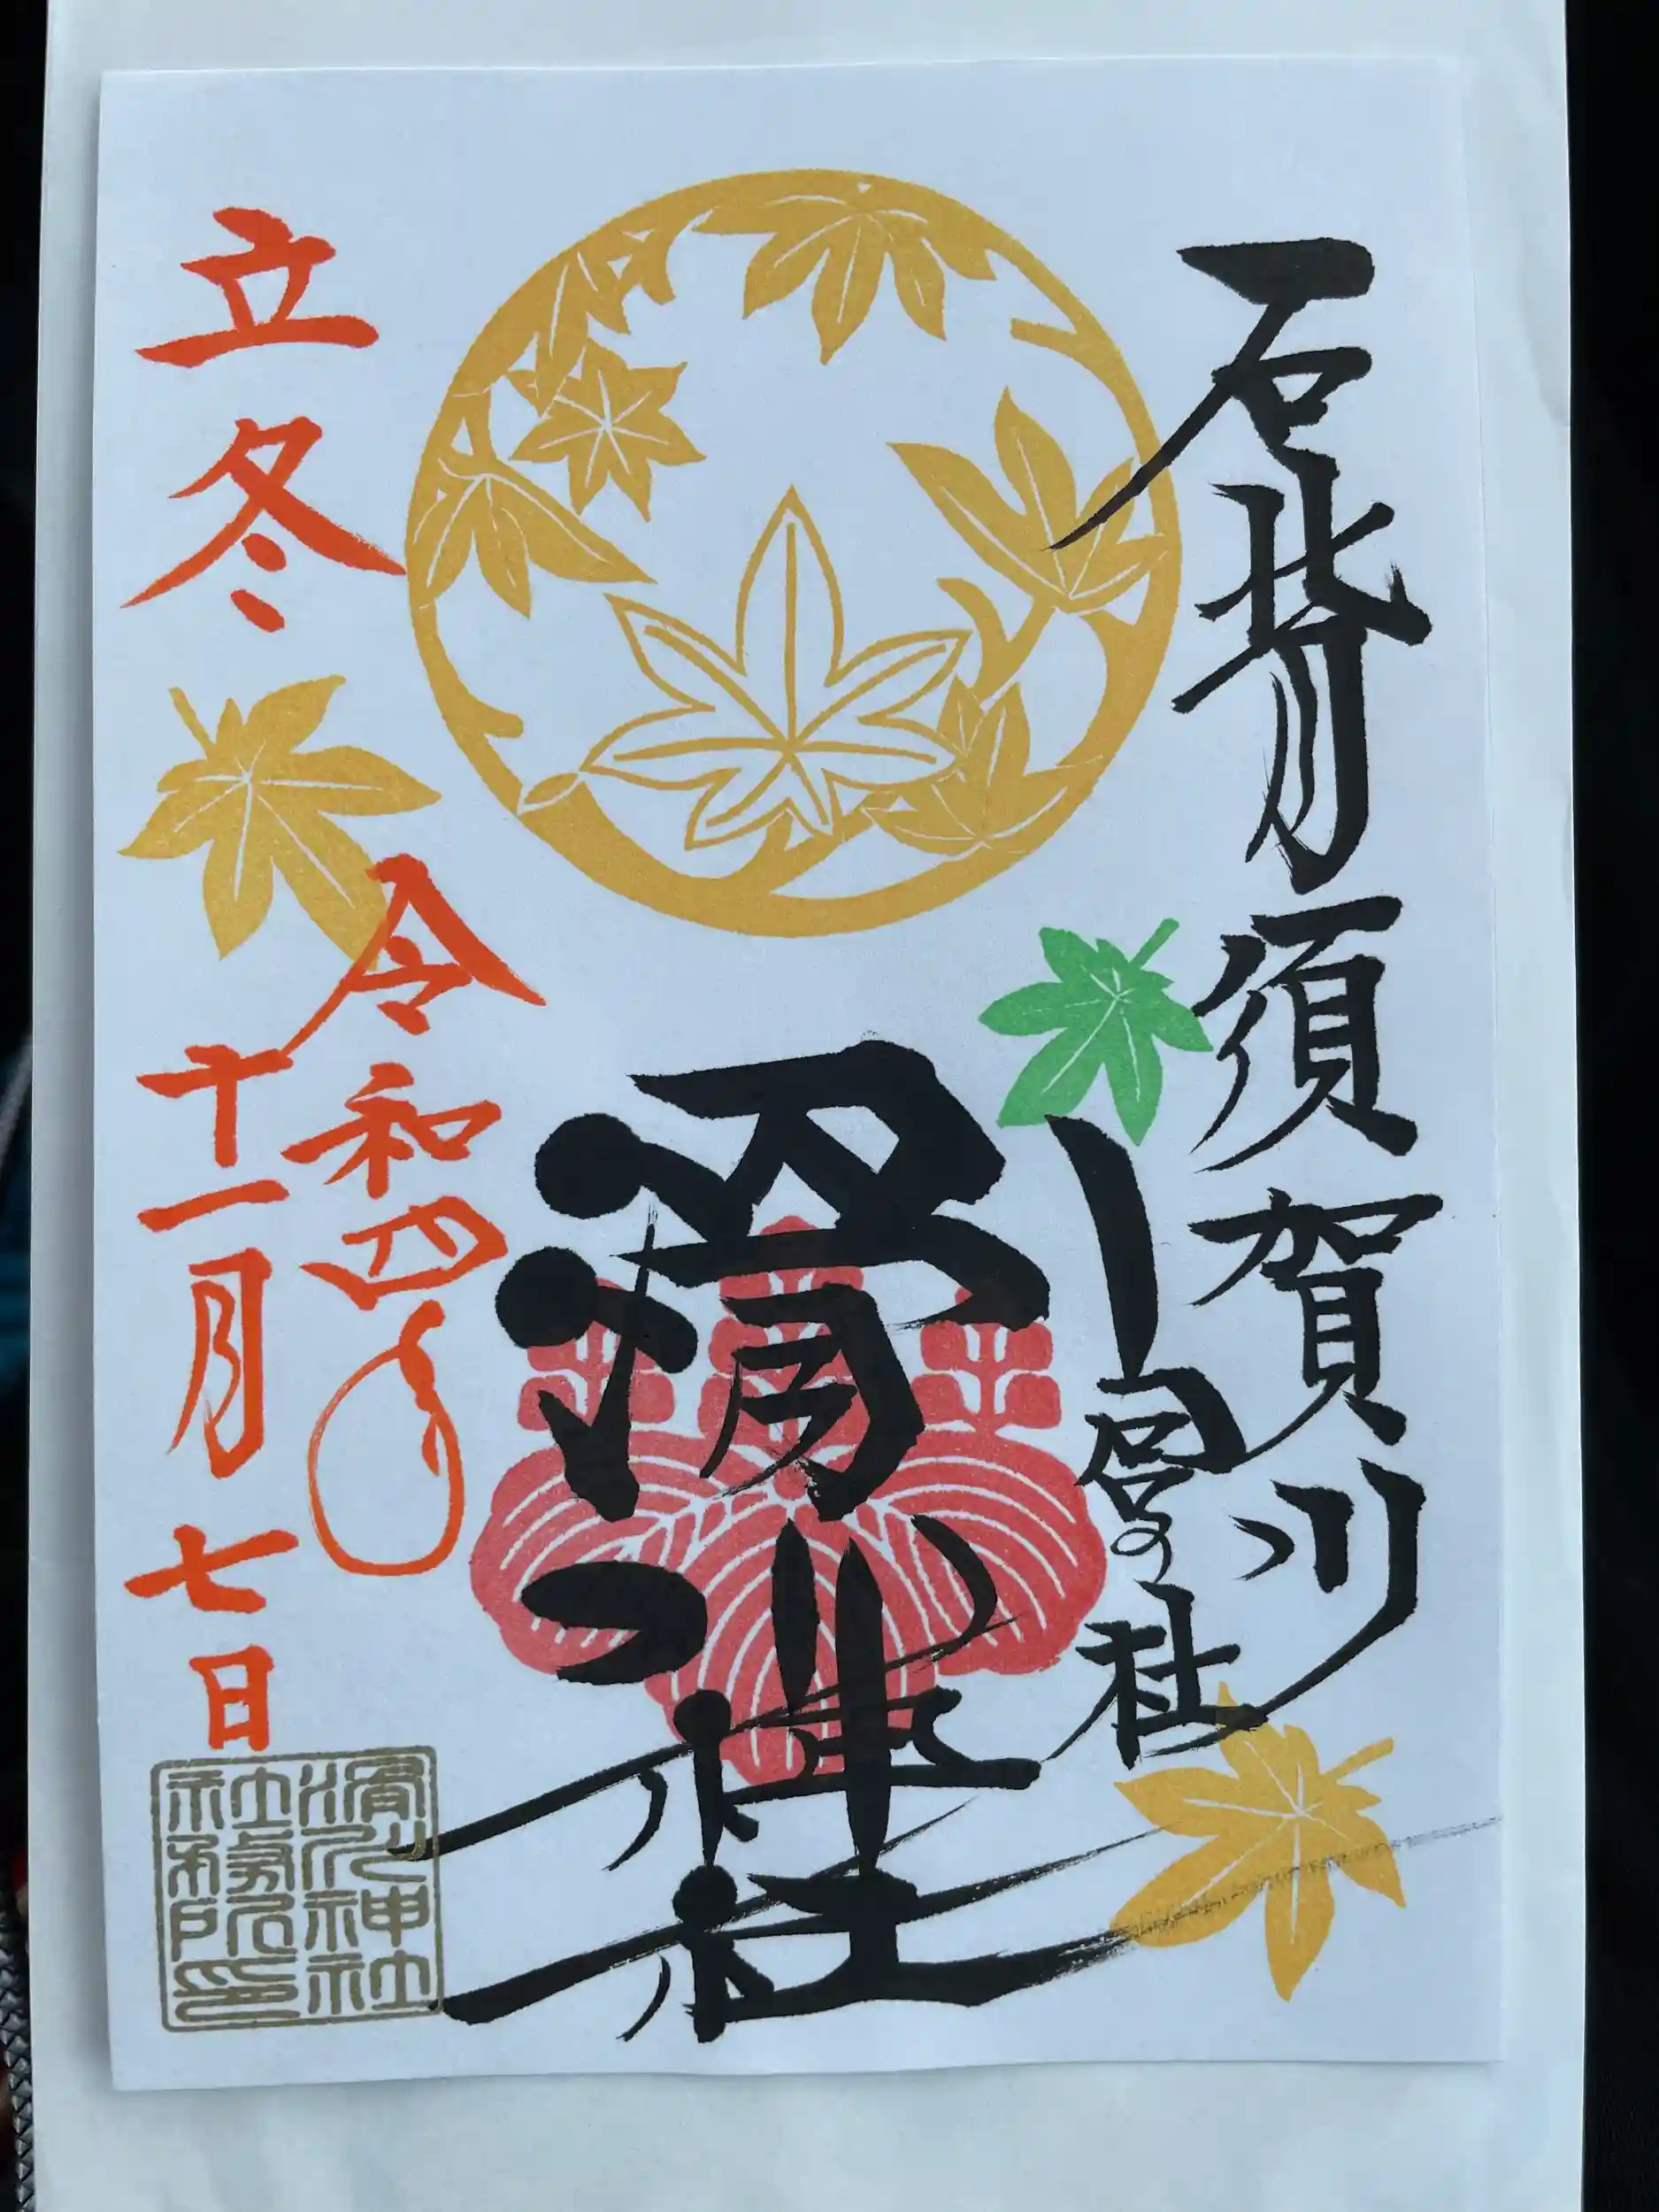 石背須賀川
宮の杜
滑川神社
令和四年
立冬
十一月七日
滑川神社
社務所印